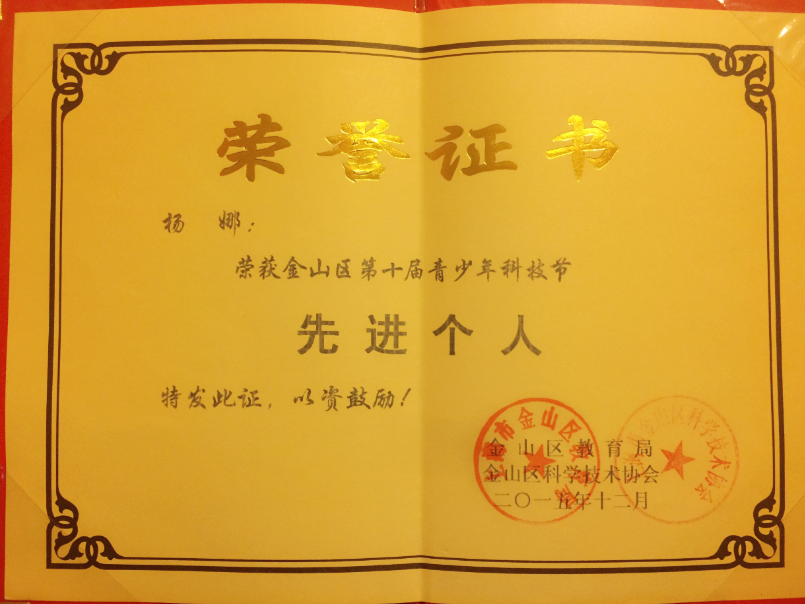 荣誉证书
杨 娜：
荣获金山区第十届青少年科技节
先进个人
特发此证，以资鼓励！
金山区教育局
金山区科学技术协会
二〇一五年十二月
上海市金山区教育局
金山区科学技术协会